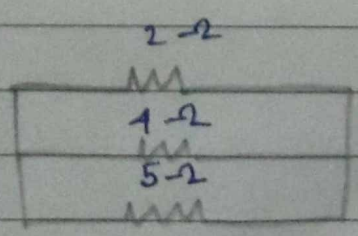 2-Ω
4-Ω
5-Ω